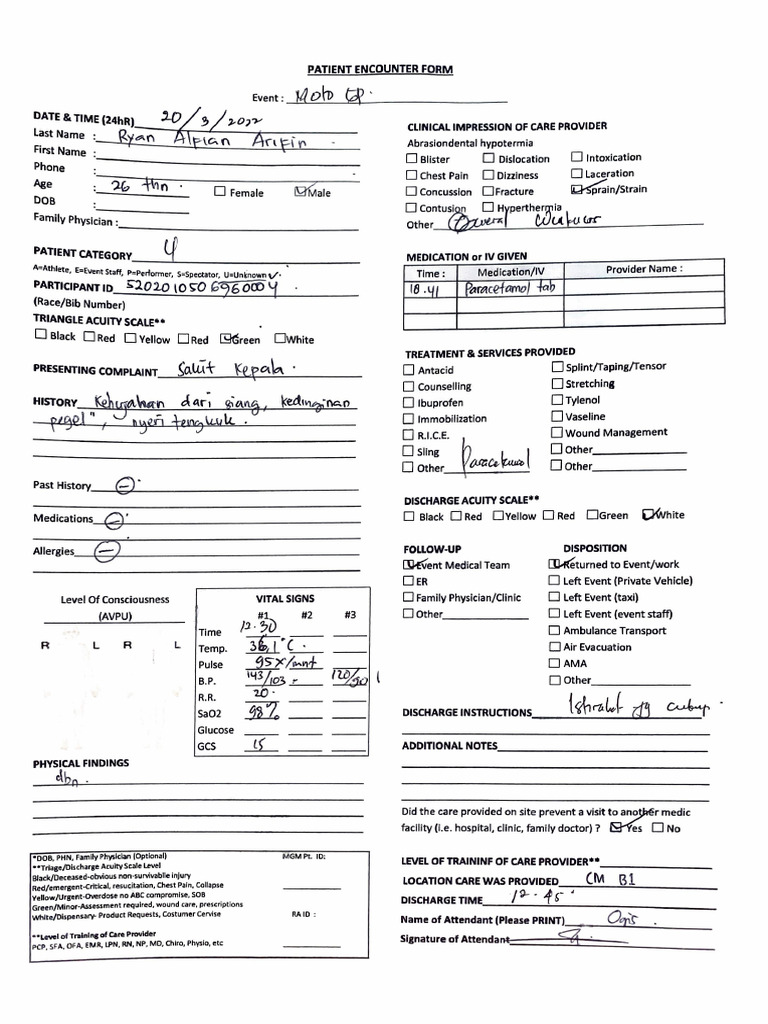 PATIENT ENCOUNTER FORM
Event : Moto GP.
DATE & TIME (24hR) 20/3/2022
Last Name : Ryan Alfian Arifin
First Name :
Phone :
Age : 26 thn. ☐ Female ☑ Male
DOB :
Family Physician :
PATIENT CATEGORY U
A=Athlete, E=Event Staff, P=Performer, S=Spectator, U=Unknown ✓.
PARTICIPANT ID 5202010506960004
(Race/Bib Number)
TRIANGLE ACUITY SCALE**
☐ Black ☐ Red ☐ Yellow ☐ Red ☑ Green ☐ White
PRESENTING COMPLAINT Sakit Kepala.
HISTORY Kehujanan dari siang, kedinginan
pegel", nyeri tengkuk.
Past History (-).
Medications (-)
Allergies (-)
Level Of Consciousness
(AVPU)
R L R L
VITAL SIGNS
#1 #2 #3
Time 12.30
Temp. 36,1°C.
Pulse 95x/mnt
B.P. 143/103 - 120/90
R.R. 20.
SaO2 98%
Glucose
GCS 15
PHYSICAL FINDINGS
dbn.
*DOB, PHN, Family Physician (Optional) MGM Pt. ID:
**Triage/Discharge Acuity Scale Level
Black/Deceased-obvious non-survivable injury
Red/emergent-Critical, resucitation, Chest Pain, Collapse
Yellow/Urgent-Overdose no ABC compromise, SOB
Green/Minor-Assessment required, wound care, prescriptions
White/Dispensary- Product Requests, Costumer Cervise RA ID :
**Level of Training of Care Provider
PCP, SFA, OFA, EMR, LPN, RN, NP, MD, Chiro, Physio, etc
CLINICAL IMPRESSION OF CARE PROVIDER
Abrasiondental hypotermia
☐ Blister ☐ Dislocation ☐ Intoxication
☐ Chest Pain ☐ Dizziness ☐ Laceration
☐ Concussion ☐ Fracture ☑ Sprain/Strain
☐ Contusion ☐ Hyperthermia
Other
MEDICATION or IV GIVEN
Time : Medication/IV Provider Name :
18.41 Paracetamol tab
TREATMENT & SERVICES PROVIDED
☐ Antacid ☐ Splint/Taping/Tensor
☐ Counselling ☐ Stretching
☐ Ibuprofen ☐ Tylenol
☐ Immobilization ☐ Vaseline
☐ R.I.C.E. ☐ Wound Management
☐ Sling ☐ Other
☐ Other Paracetamol ☐ Other
DISCHARGE ACUITY SCALE**
☐ Black ☐ Red ☐ Yellow ☐ Red ☐ Green ☑ White
FOLLOW-UP
☑ Event Medical Team
☐ ER
☐ Family Physician/Clinic
☐ Other
DISPOSITION
☑ Returned to Event/work
☐ Left Event (Private Vehicle)
☐ Left Event (taxi)
☐ Left Event (event staff)
☐ Ambulance Transport
☐ Air Evacuation
☐ AMA
☐ Other
DISCHARGE INSTRUCTIONS Istirahat yg cukup.
ADDITIONAL NOTES
Did the care provided on site prevent a visit to another medic
facility (i.e. hospital, clinic, family doctor) ? ☑ Yes ☐ No
LEVEL OF TRAININF OF CARE PROVIDER**
LOCATION CARE WAS PROVIDED CM B1
DISCHARGE TIME 12.45
Name of Attendant (Please PRINT)
Signature of Attendant